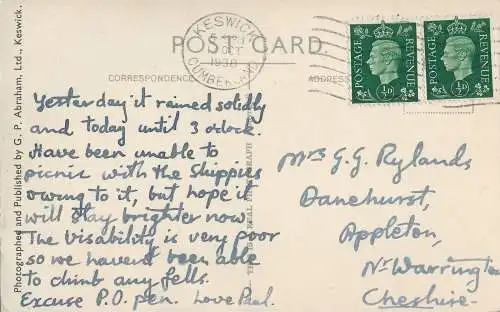 KESWICK
OCT
1938
CUMBERLAND
POST CARD.
CORRESPONDENCE
ADDRESS
POSTAGE REVENUE
½D
POSTAGE REVENUE
½D
Photographed and Published by G. P. Abraham, Ltd., Keswick.
Yesterday it rained solidly
and today until 3 o'clock.
Have been unable to
picnic with the Shippies
owing to it, but hope it
will stay brighter now.
The visability is very poor
so we havent been able
to climb any fells.
Excuse P.O. pen. Love Paul.
THIS IS A REAL PHOTOGRAPH
Mrs G.G. Rylands
Danehurst,
Appleton,
Nr Warrington
Cheshire.